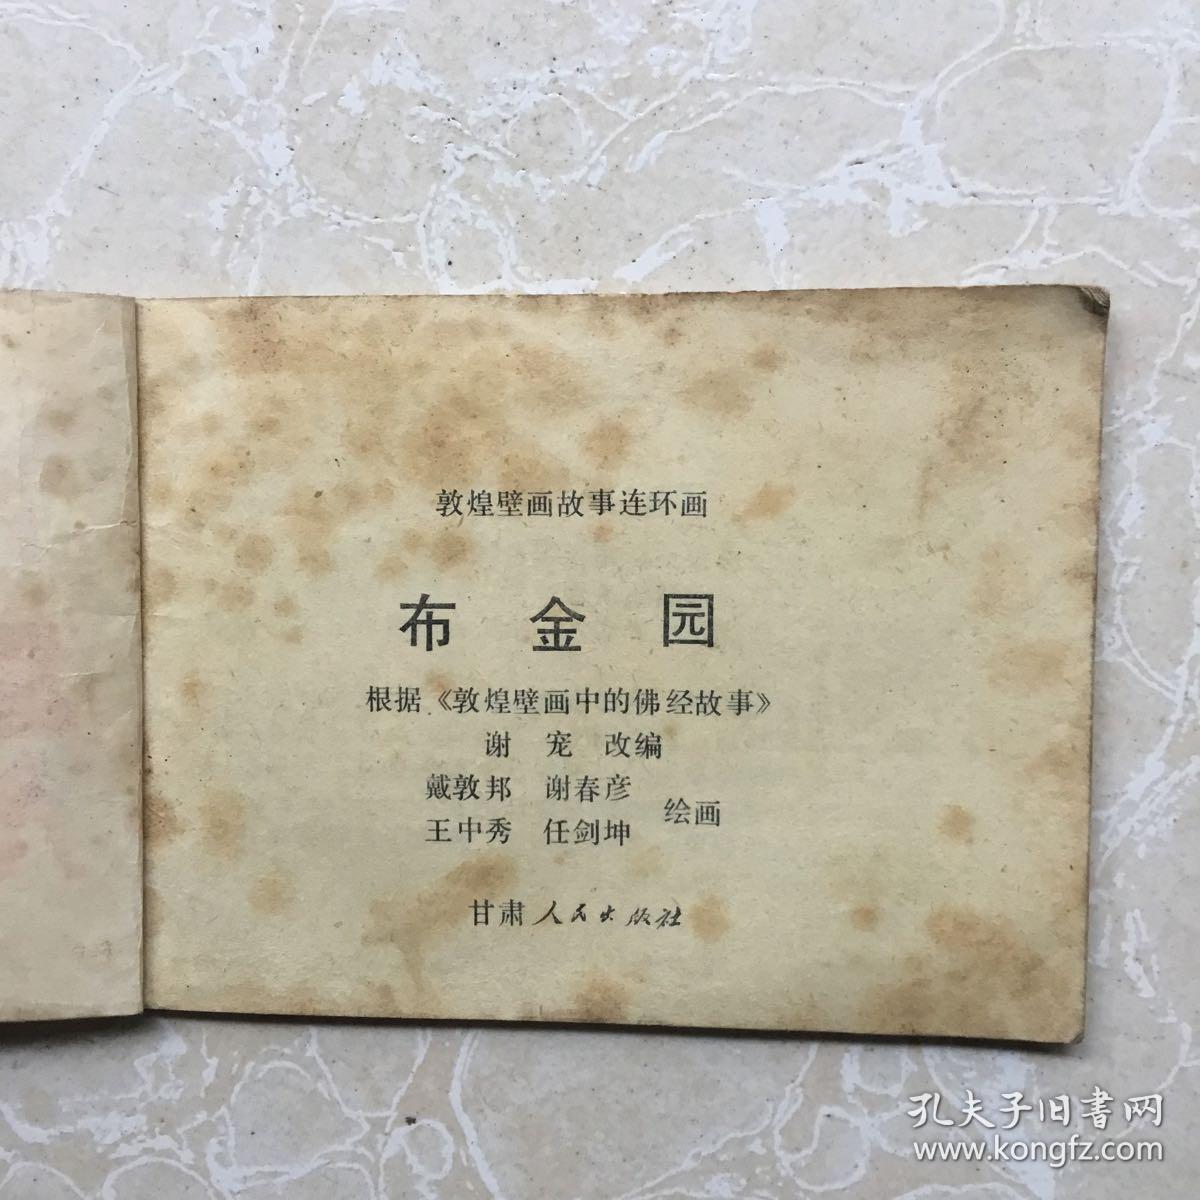 敦煌壁画故事连环画
布金园
根据《敦煌壁画中的佛经故事》
谢 宠 改编
戴敦邦 谢春彦
王中秀 任剑坤
绘画
甘肃人民出版社
孔夫子旧書网
www.kongfz.com